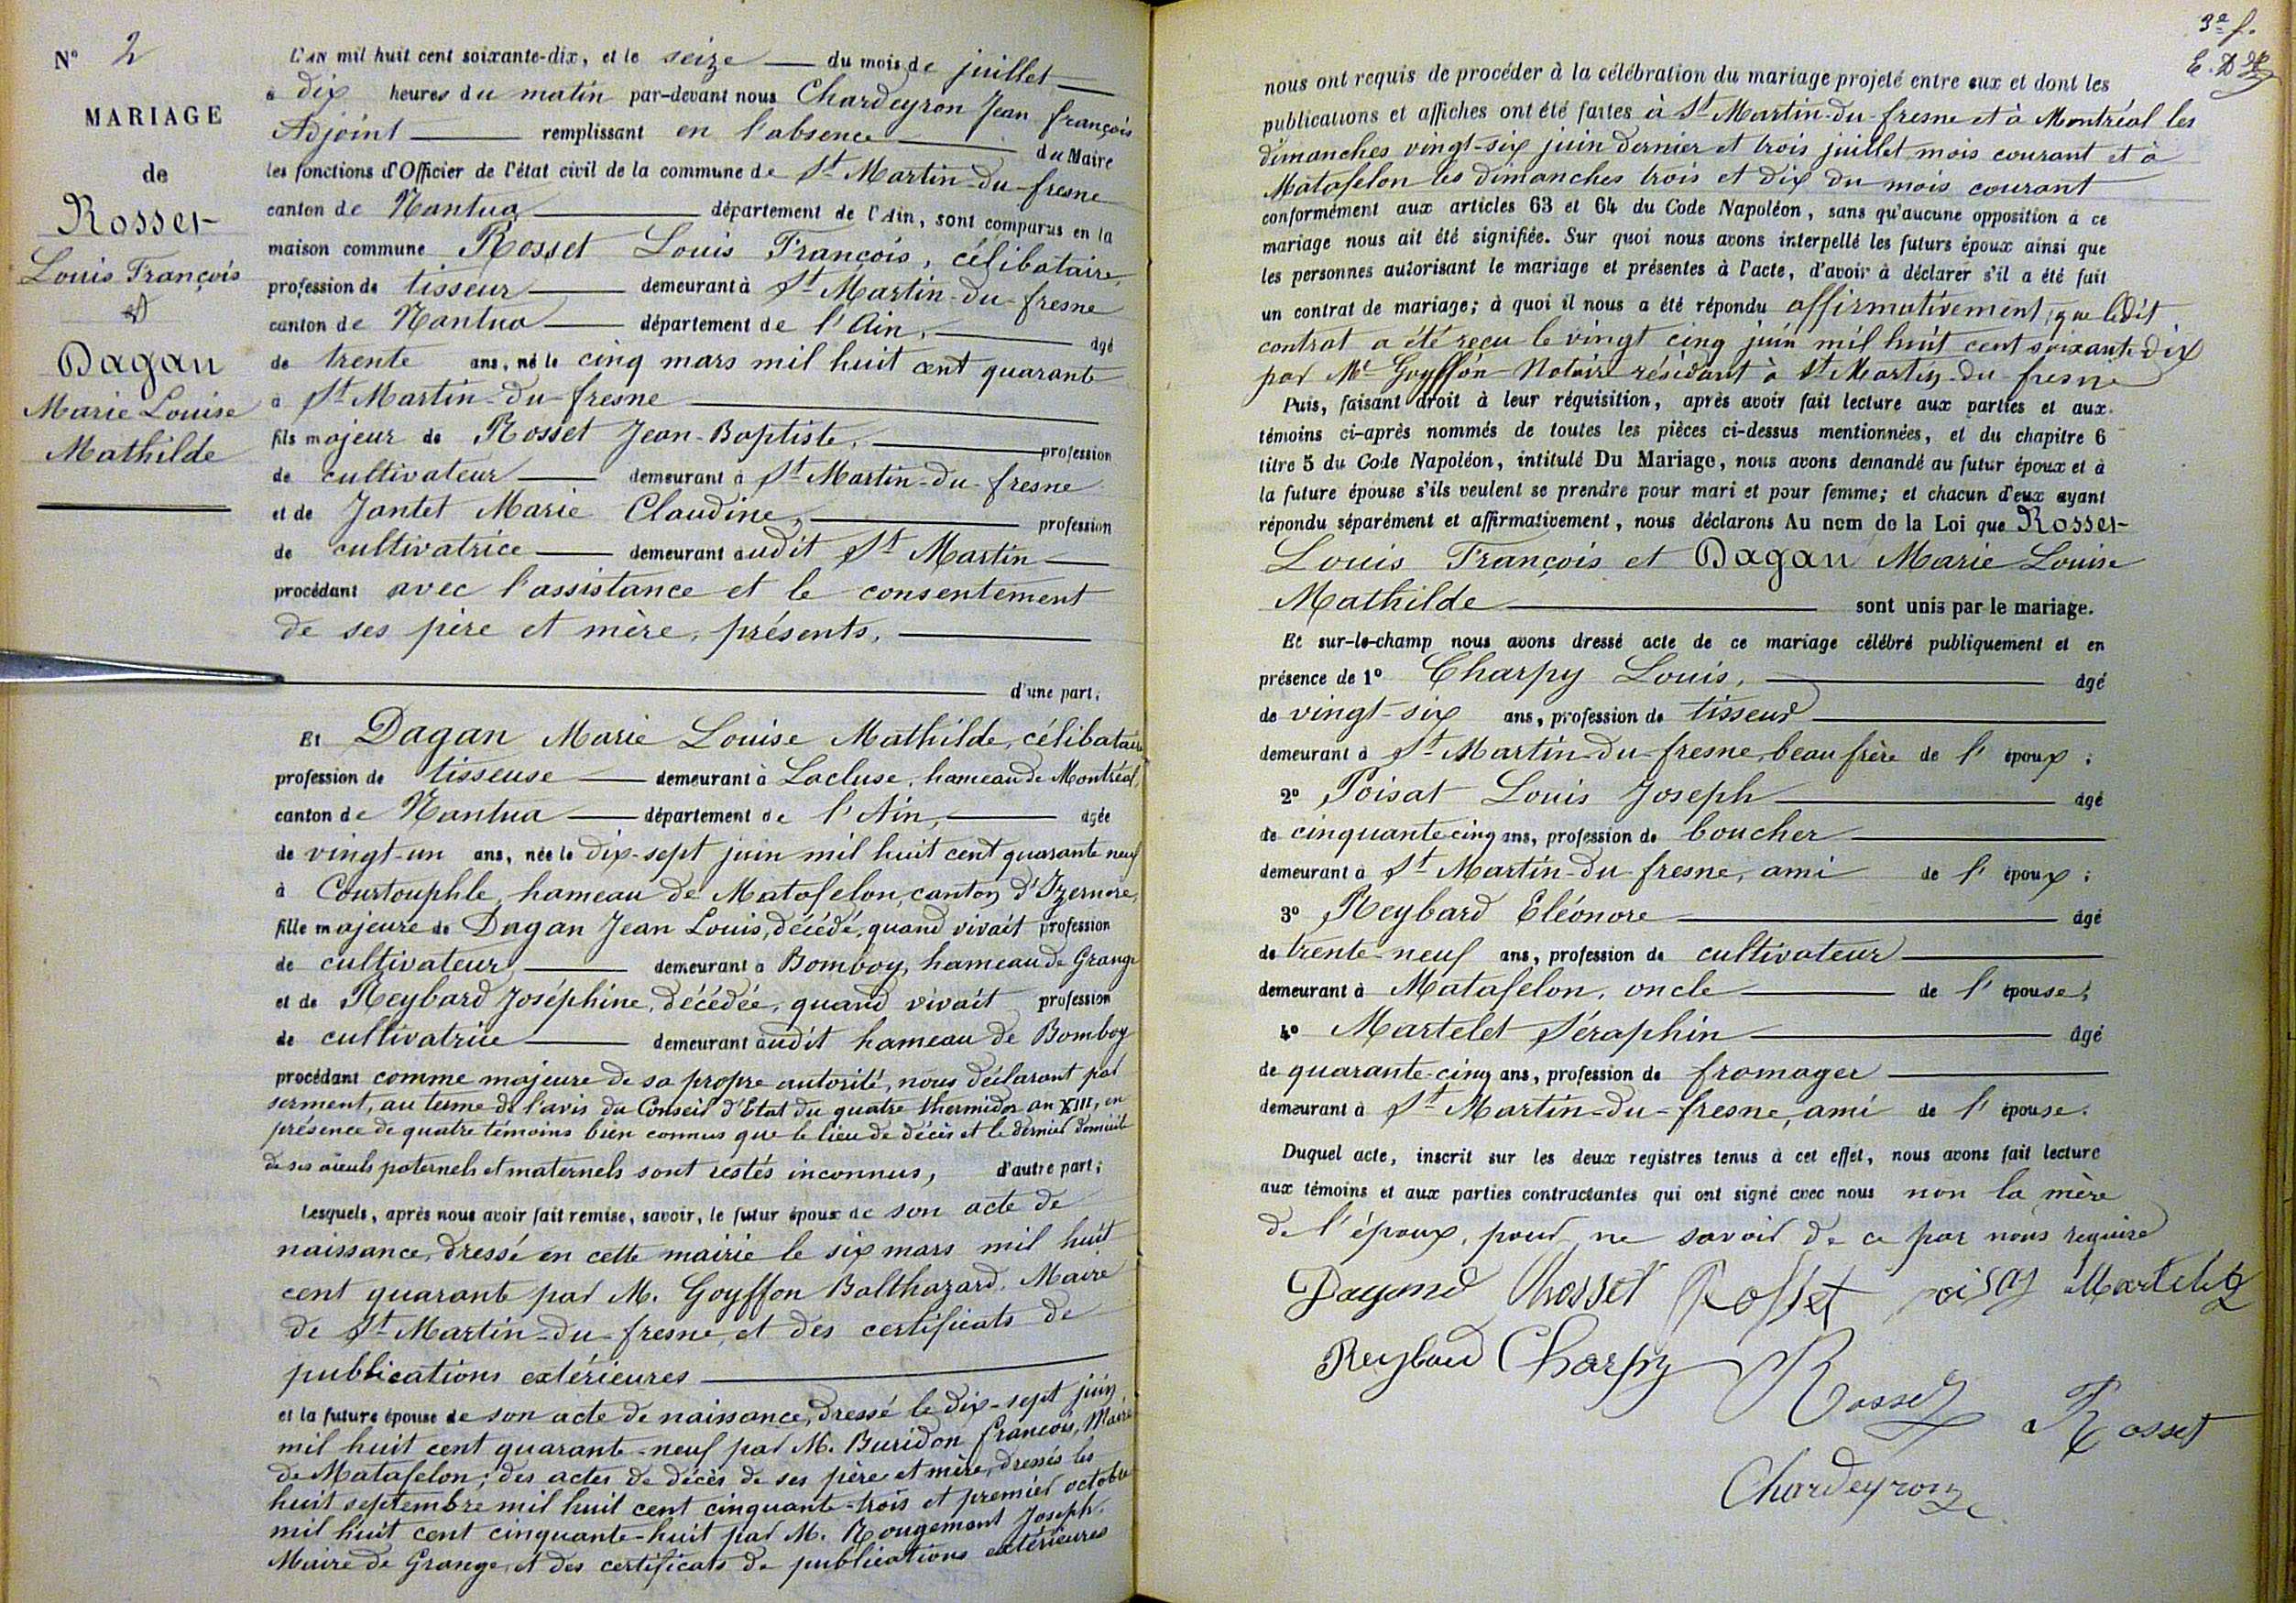 N° 2
MARIAGE
de
Rosset
Louis François
et
Dagan
Marie Louise
Mathilde
L'AN mil huit cent soixante-dix, et le seize du mois de juillet
à dix heures du matin par-devant nous Chardeyron Jean françois
Adjoint remplissant en l'absence du Maire
les fonctions d'Officier de l'état civil de la commune de St Martin-du-fresne
canton de Nantua département de l'Ain, sont comparus en la
maison commune Rosset Louis François, célibataire,
profession de tisseur demeurant à St Martin-du-fresne
canton de Nantua département de l'Ain, âgé
de trente ans, né le cinq mars mil huit cent quarante
à St Martin-du-fresne
fils majeur de Rosset Jean-Baptiste, profession
de cultivateur demeurant à St Martin-du-fresne
et de Jantet Marie Claudine, profession
de cultivatrice demeurant audit St Martin
procédant avec l'assistance et le consentement
de ses père et mère, présents,
d'une part;
Et Dagan Marie Louise Mathilde, célibataire
profession de tisseuse demeurant à Lacluse, hameau de Montréal,
canton de Nantua département de l'Ain, âgée
de vingt-un ans, née le dix-sept juin mil huit cent quarante neuf
à Courtouphle, hameau de Matafelon, canton d'Izernore,
fille majeure de Dagan Jean Louis, décédé, quand vivait profession
de cultivateur demeurant à Bomboy, hameau de Grange
et de Reybard Joséphine, décédée, quand vivait profession
de cultivatrice demeurant audit hameau de Bomboy
procédant comme majeure de sa propre autorité, nous déclarant par
serment, au terme de l'avis du Conseil d'Etat du quatre thermidor an XIII, en
présence de quatre témoins bien connus que le lieu de décès et le dernier domicile
de ses aïeuls paternels et maternels sont restés inconnus, d'autre part;
Lesquels, après nous avoir fait remise, savoir, le futur époux de son acte de
naissance, dressé en cette mairie le six mars mil huit
cent quarante par M. Goyffon Balthazard, Maire
de St Martin-du-fresne, et des certificats de
publications extérieures
et la future épouse de son acte de naissance, dressé le dix-sept juin
mil huit cent quarante-neuf par M. Buridon françois, Maire
de Matafelon; des actes de décès de ses père et mère, dressés les
huit septembre mil huit cent cinquante-trois et premier octobre
mil huit cent cinquante-huit par M. Rougemont Joseph,
Maire de Grange, et des certificats de publications extérieures
3e f.
nous ont requis de procéder à la célébration du mariage projeté entre eux et dont les
publications et affiches ont été faites à St Martin-du-fresne et à Montréal les
dimanches vingt-six juin dernier et trois juillet, mois courant et à
Matafelon les dimanches trois et dix du mois courant
conformément aux articles 63 et 64 du Code Napoléon, sans qu'aucune opposition à ce
mariage nous ait été signifiée. Sur quoi nous avons interpellé les futurs époux ainsi que
les personnes autorisant le mariage et présentes à l'acte, d'avoir à déclarer s'il a été fait
un contrat de mariage; à quoi il nous a été répondu affirmativement, que ledit
contrat a été reçu le vingt cinq juin mil huit cent soixante dix
par Me Goyffon Notaire résidant à St Martin-du-fresne
Puis, faisant droit à leur réquisition, après avoir fait lecture aux parties et aux
témoins ci-après nommés de toutes les pièces ci-dessus mentionnées, et du chapitre 6
titre 5 du Code Napoléon, intitulé Du Mariage, nous avons demandé au futur époux et à
la future épouse s'ils veulent se prendre pour mari et pour femme; et chacun d'eux ayant
répondu séparément et affirmativement, nous déclarons Au nom de la Loi que Rosset
Louis François et Dagan Marie Louise
Mathilde sont unis par le mariage.
Et sur-le-champ nous avons dressé acte de ce mariage célébré publiquement et en
présence de 1° Charpy Louis, âgé
de vingt-six ans, profession de tisseur
demeurant à St Martin-du-fresne, beau frère de l'époux;
2° Poisat Louis Joseph âgé
de cinquante cinq ans, profession de boucher
demeurant à St Martin-du-fresne, ami de l'époux;
3° Reybard Eléonore âgé
de trente-neuf ans, profession de cultivateur
demeurant à Matafelon, oncle de l'épouse;
4° Martelet Séraphin âgé
de quarante-cinq ans, profession de fromager
demeurant à St Martin-du-fresne, ami de l'épouse.
Duquel acte, inscrit sur les deux registres tenus à cet effet, nous avons fait lecture
aux témoins et aux parties contractantes qui ont signé avec nous non la mère
de l'époux, pour ne savoir de ce par nous requise
Rosset Rosset Martelet
Reybard Charpy Rosset Rosset
Chardeyron